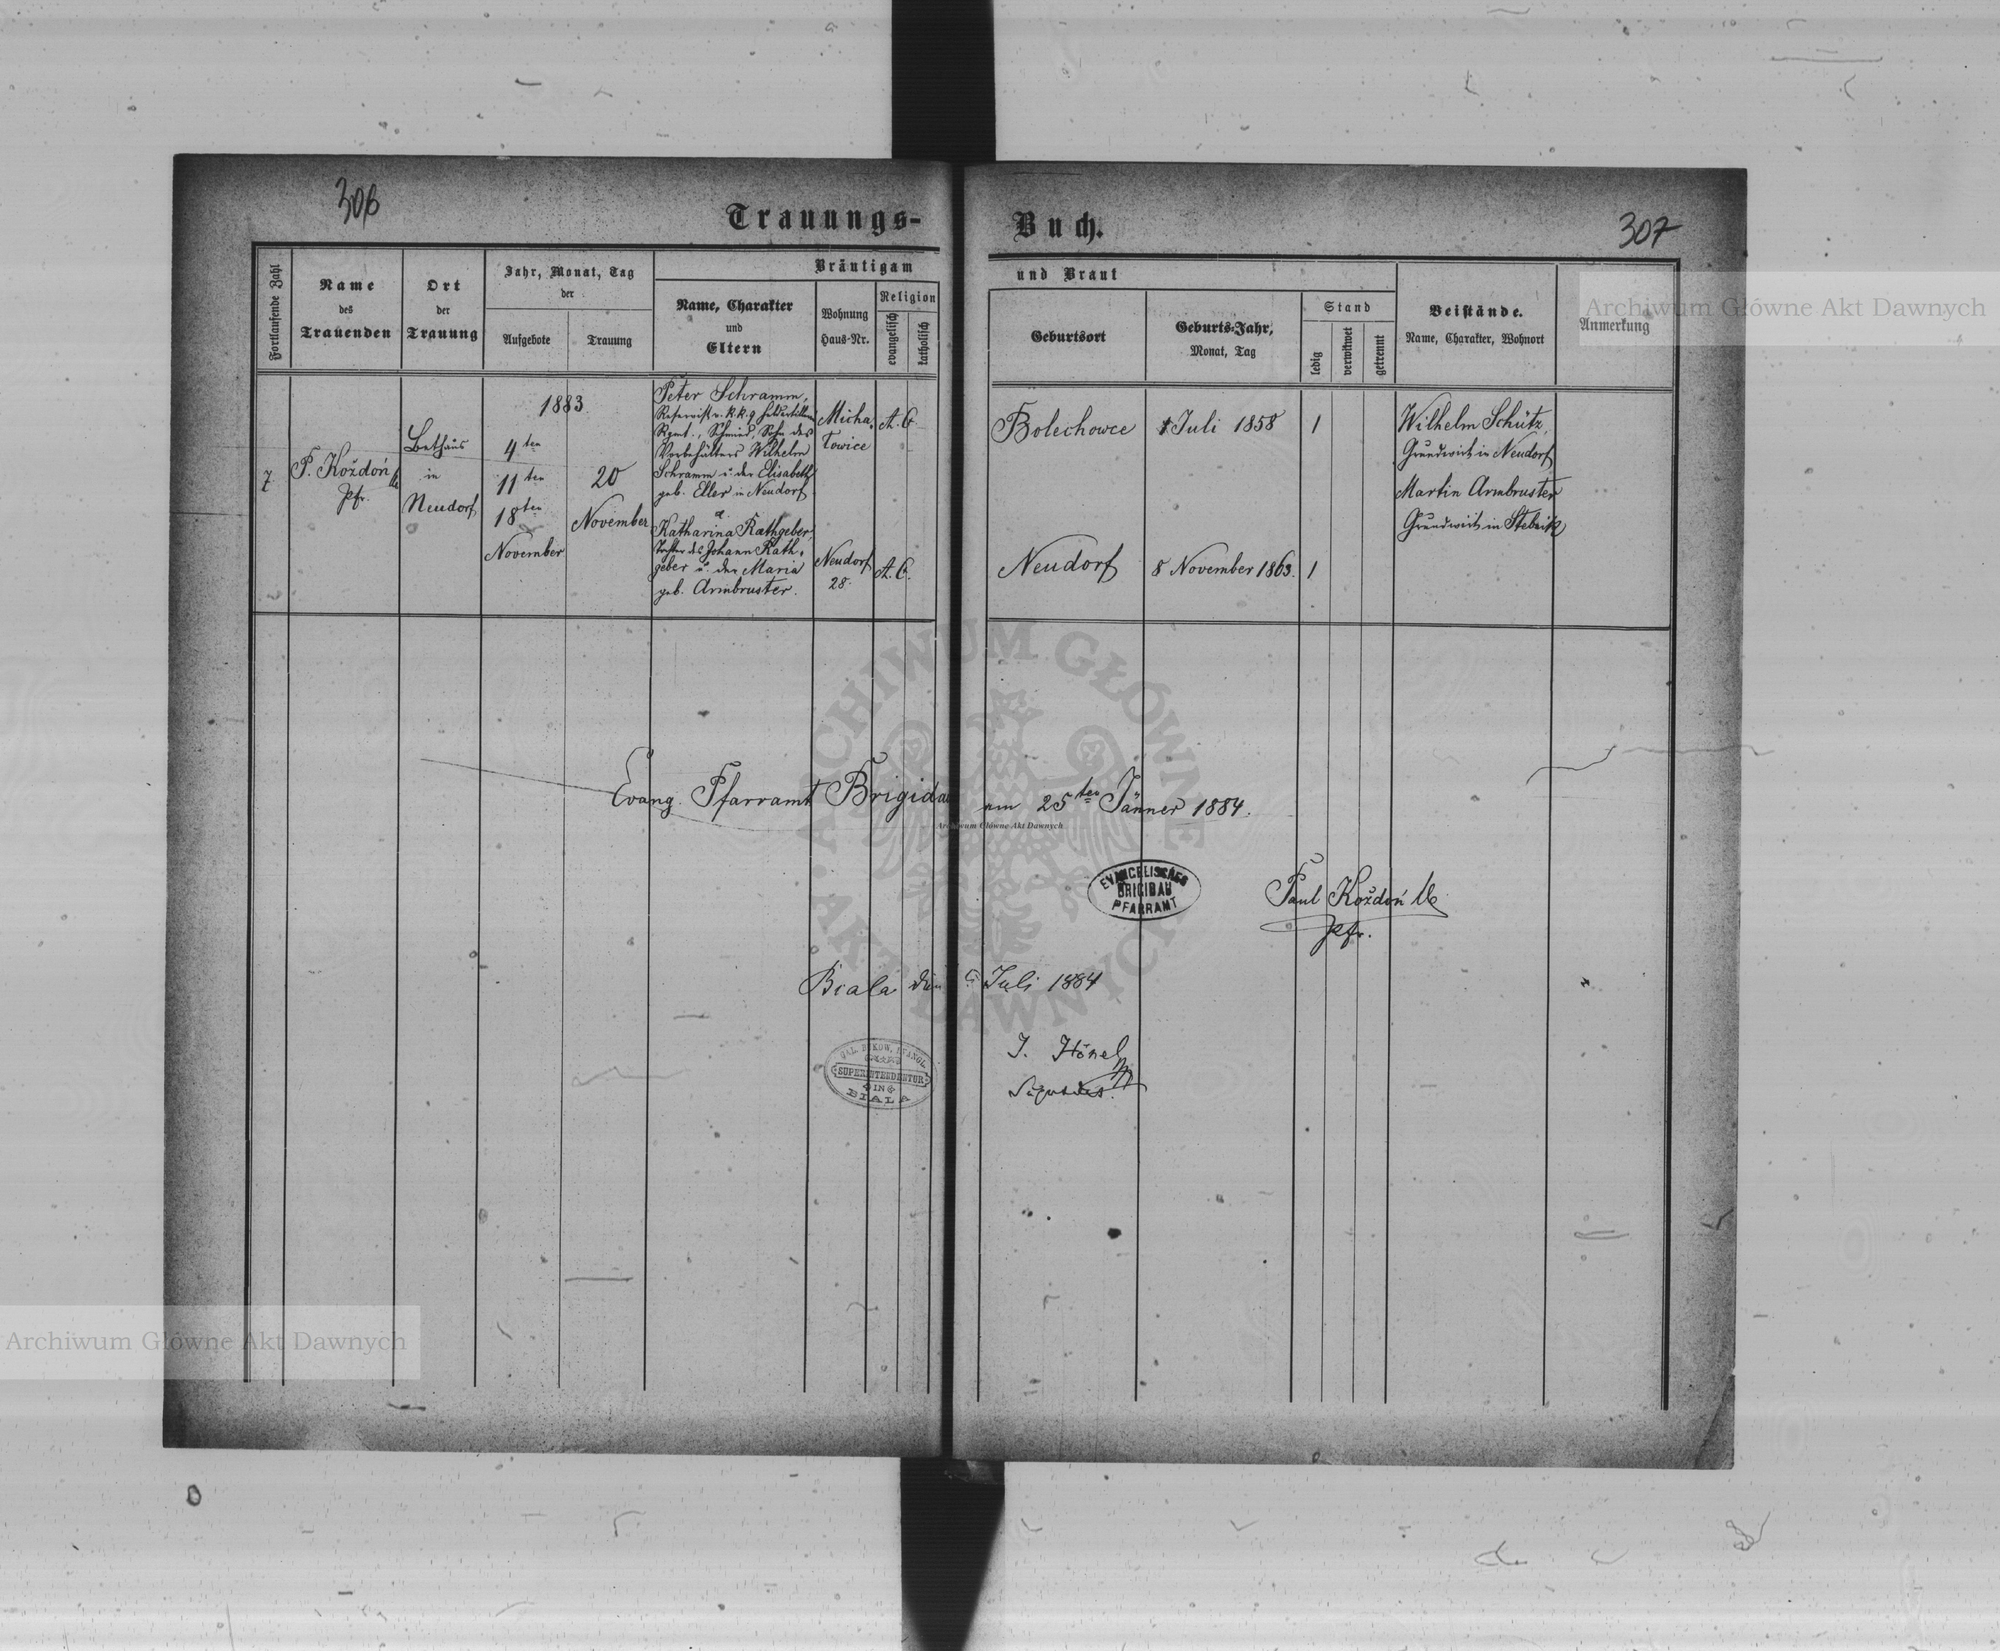 306
Trauungs-
Buch.
307
Fortlaufende Zahl
Name
des
Trauenden
Ort
der
Trauung
Jahr, Monat, Tag
der
Aufgebote
Trauung
Bräutigam
und Braut
Name, Charakter
und
Eltern
Wohnung
Haus-Nr.
Religion
evangelisch
katholisch
Geburtsort
Geburts-Jahr,
Monat, Tag
Stand
ledig
verwitwet
getrennt
Beistände.
Name, Charakter, Wohnort
Anmerkung
7
P. Koždoń
Pfr.
Bethaus
in
Neudorf
1883
4ten
11ten
18ten
November
20
November
Peter Schramm,
Reservist v. k.k. 9 Feldartillerie
Rgmt., Schmied, Sohn des
Vorbehälters Wilhelm
Schramm u. der Elisabeth
geb. Eller in Neudorf.
Micha-
lowice
A. C.
Bolechowce
1 Juli 1858
1
Wilhelm Schütz,
Grundwirt in Neudorf
Martin Armbruster
Grundwirt in Stebnik
Katharina Rathgeber,
Tochter des Johann Rath-
geber u. der Maria
geb. Armbruster.
Neudorf
28.
A. C.
Neudorf
8 November 1863.
1
Evang. Pfarramt Brigidau am 25ten Jänner 1884.
EVANGELISCHES
BRIGIDAU
PFARRAMT
Paul Koždoń
Pfr.
Biala Juli 1884
GAL. BUKOW. EVANGL.
SUPERINTENDENTUR
IN
BIALA
J. Hönel
ARCHIWUM GŁÓWNE
AKT DAWNYCH
Archiwum Główne Akt Dawnych
Archiwum Główne Akt Dawnych
Archiwum Główne Akt Dawnych